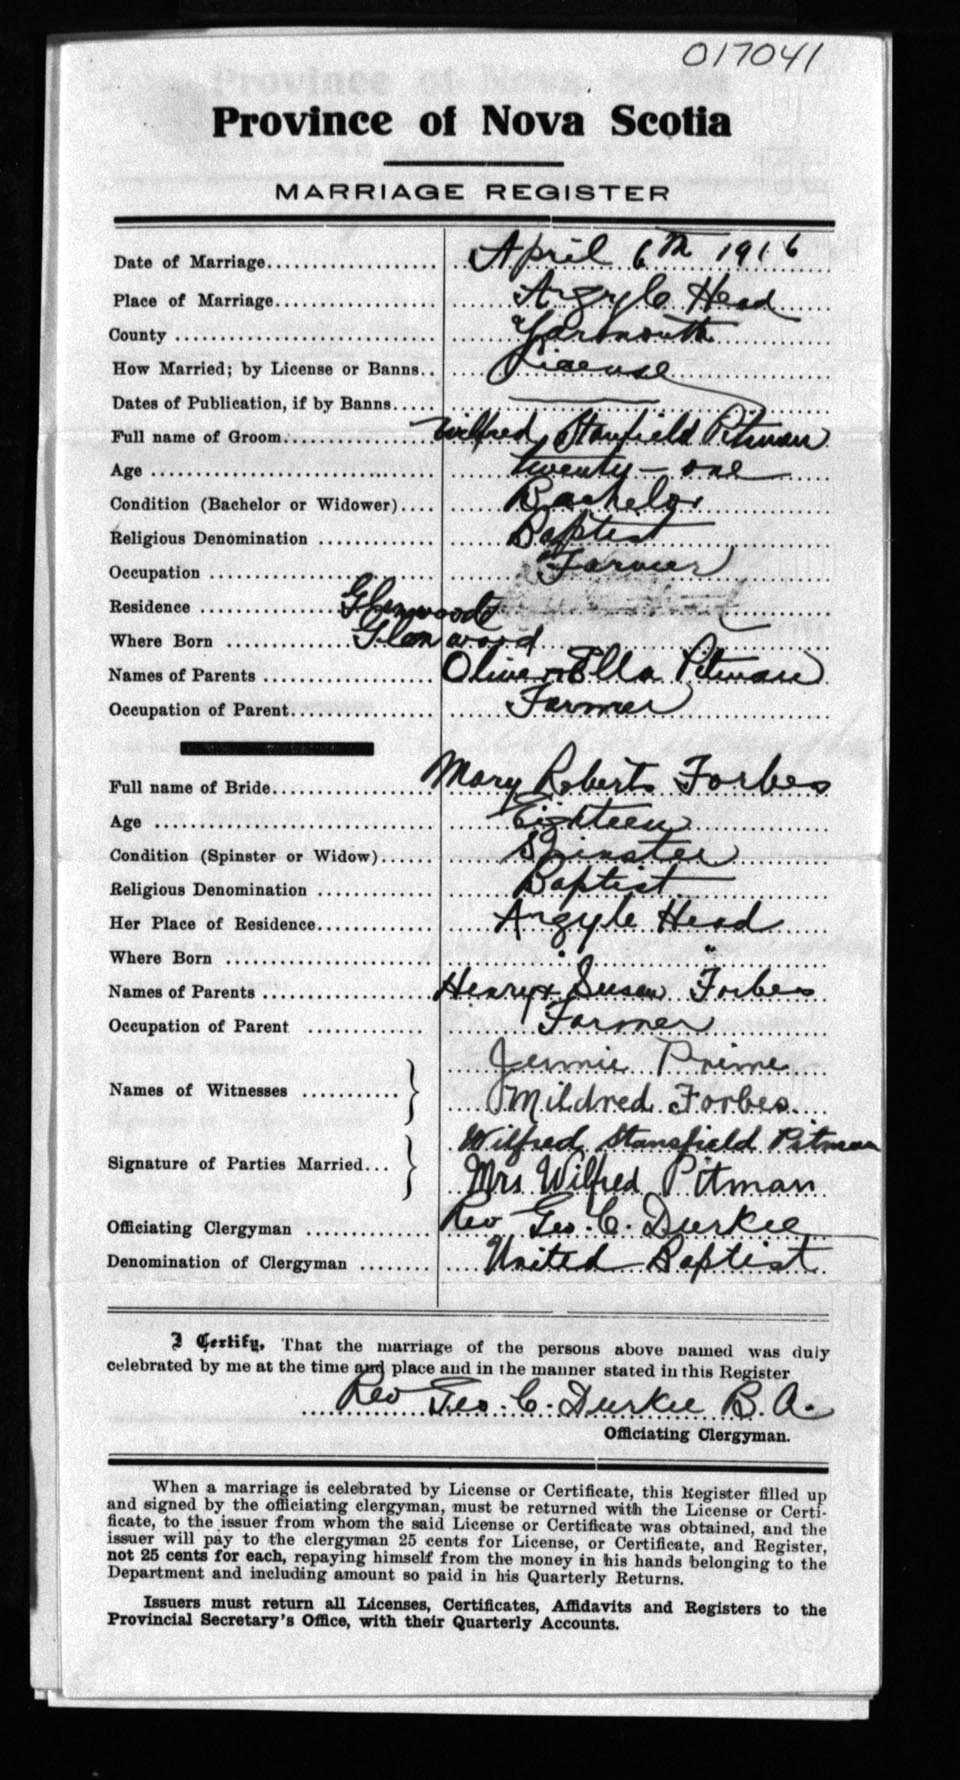 017041
Province of Nova Scotia
MARRIAGE REGISTER
Date of Marriage.................... April 6th 1916
Place of Marriage................... Argyle Head
County .............................. Yarmouth
How Married; by License or Banns.. License
Dates of Publication, if by Banns.....
Full name of Groom.................. Wilfred Stanfield Pitman
Age .................................. twenty-one
Condition (Bachelor or Widower).... Bachelor
Religious Denomination .............. Baptist
Occupation .......................... Farmer
Residence ................ Glenwood
Where Born .............. Glenwood
Names of Parents .................... Oliver + Ella Pitman
Occupation of Parent................. Farmer
Full name of Bride................... Mary Roberts Forbes
Age .................................. Eighteen
Condition (Spinster or Widow)...... Spinster
Religious Denomination .............. Baptist
Her Place of Residence.............. Argyle Head
Where Born .......................... " "
Names of Parents .................... Henry + Susan Forbes
Occupation of Parent ............. Farmer
Jennie Prime
Names of Witnesses ...........}
Mildred Forbes
Wilfred Stansfield Pitman
Signature of Parties Married...}
Mrs Wilfred Pitman
Officiating Clergyman .............. Rev Geo. C. Durkee
Denomination of Clergyman ........ United Baptist
I Certify, That the marriage of the persons above named was duly
celebrated by me at the time and place and in the manner stated in this Register
Rev Geo. C. Durkee B. A.
Officiating Clergyman.
When a marriage is celebrated by License or Certificate, this Register filled up
and signed by the officiating clergyman, must be returned with the License or Certi-
ficate, to the issuer from whom the said License or Certificate was obtained, and the
issuer will pay to the clergyman 25 cents for License, or Certificate, and Register,
not 25 cents for each, repaying himself from the money in his hands belonging to the
Department and including amount so paid in his Quarterly Returns.
Issuers must return all Licenses, Certificates, Affidavits and Registers to the
Provincial Secretary's Office, with their Quarterly Accounts.